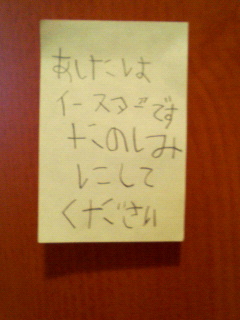 あしたは
イースターです
たのしみ
にして
ください